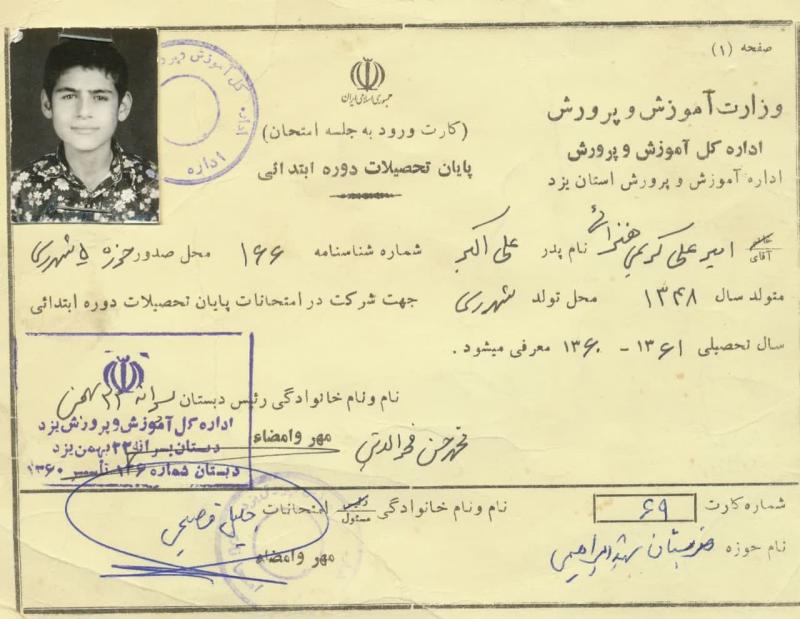 صفحه (۱)
جمهوری اسلامی ایران
وزارت آموزش و پرورش
اداره کل آموزش و پرورش
اداره آموزش و پرورش استان یزد
(کارت ورود به جلسه امتحان)
پایان تحصیلات دوره ابتدائی
کل آموزش و پرورش اداره
اداره
خانم آقای امیر علی کریمی نام پدر علی اکبر شماره شناسنامه ۱۶۶ محل صدور حوزه ۵ شهرری
متولد سال ۱۳۴۸ محل تولد شهرری جهت شرکت در امتحانات پایان تحصیلات دوره ابتدائی
سال تحصیلی ۱۳۶۱ - ۱۳۶۰ معرفی میشود.
نام و نام خانوادگی رئیس دبستان پسرانه ۲۲ بهمن
مهر وامضاء محمد حسن
اداره کل آموزش و پرورش یزد
دبستان پسرانه ۲۲ بهمن یزد
دبستان شماره ۱۲۶ تأسیس ۱۳۶۰
شماره کارت ۶۹
نام و نام خانوادگی رئیس مسئول امتحانات خلیل
نام حوزه شهید ابراهیمی
مهر وامضاء